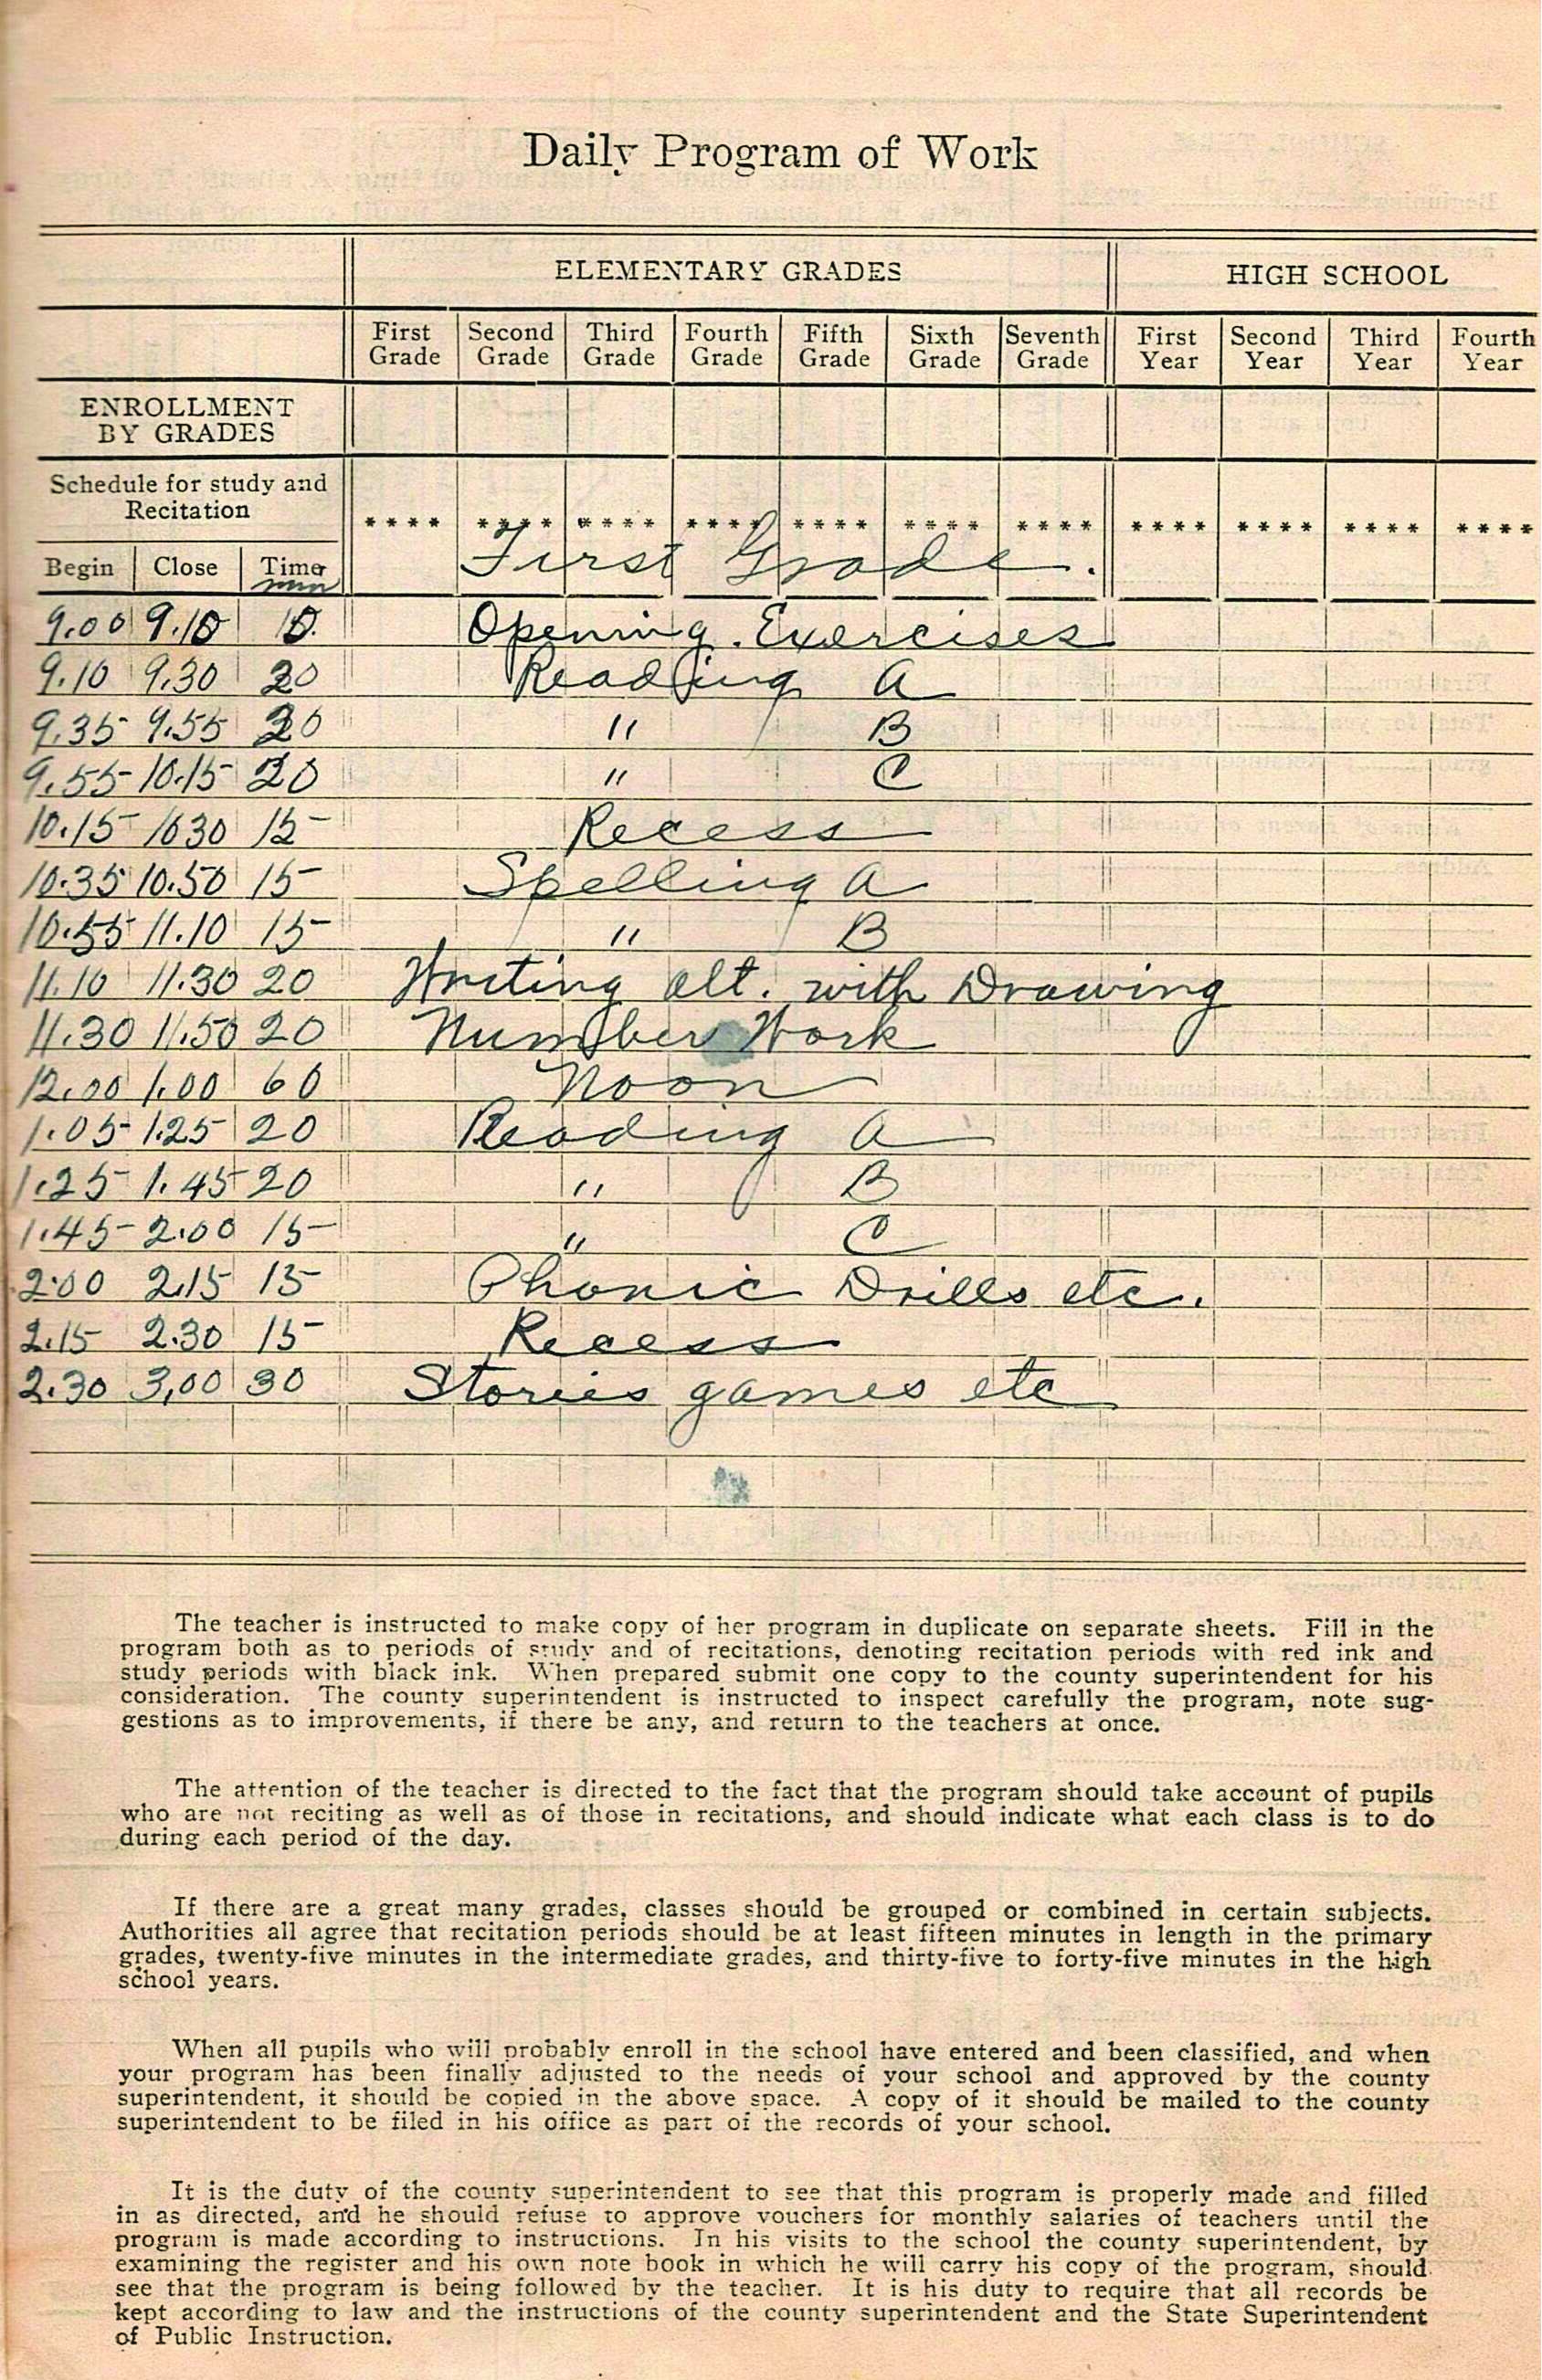 Daily Program of Work
ELEMENTARY GRADES HIGH SCHOOL
First Grade Second Grade Third Grade Fourth Grade Fifth Grade Sixth Grade Seventh Grade First Year Second Year Third Year Fourth Year
ENROLLMENT
BY GRADES
Schedule for study and
Recitation
**** **** **** **** **** **** **** **** **** **** ****
Begin Close Time
min
First Grade.
9.00 9.10 10. Opening Exercises
9.10 9.30 20 Reading A
9.35 9.55 20 " B
9.55 10.15 20 " C
10.15 1030 15 Recess
10.35 10.50 15 Spelling A
10.55 11.10 15 " B
11.10 11.30 20 Writing alt. with Drawing
11.30 11.50 20 Number Work
12.00 1.00 60 Noon
1.05 1.25 20 Reading A
1.25 1.45 20 " B
1.45 2.00 15 " C
2.00 2.15 15 Phonic Drills etc.
2.15 2.30 15 Recess
2.30 3,00 30 Stories games etc
The teacher is instructed to make copy of her program in duplicate on separate sheets. Fill in the
program both as to periods of study and of recitations, denoting recitation periods with red ink and
study periods with black ink. When prepared submit one copy to the county superintendent for his
consideration. The county superintendent is instructed to inspect carefully the program, note sug-
gestions as to improvements, if there be any, and return to the teachers at once.
The attention of the teacher is directed to the fact that the program should take account of pupils
who are not reciting as well as of those in recitations, and should indicate what each class is to do
during each period of the day.
If there are a great many grades, classes should be grouped or combined in certain subjects.
Authorities all agree that recitation periods should be at least fifteen minutes in length in the primary
grades, twenty-five minutes in the intermediate grades, and thirty-five to forty-five minutes in the high
school years.
When all pupils who will probably enroll in the school have entered and been classified, and when
your program has been finally adjusted to the needs of your school and approved by the county
superintendent, it should be copied in the above space. A copy of it should be mailed to the county
superintendent to be filed in his office as part of the records of your school.
It is the duty of the county superintendent to see that this program is properly made and filled
in as directed, and he should refuse to approve vouchers for monthly salaries of teachers until the
program is made according to instructions. In his visits to the school the county superintendent, by
examining the register and his own note book in which he will carry his copy of the program, should
see that the program is being followed by the teacher. It is his duty to require that all records be
kept according to law and the instructions of the county superintendent and the State Superintendent
of Public Instruction.